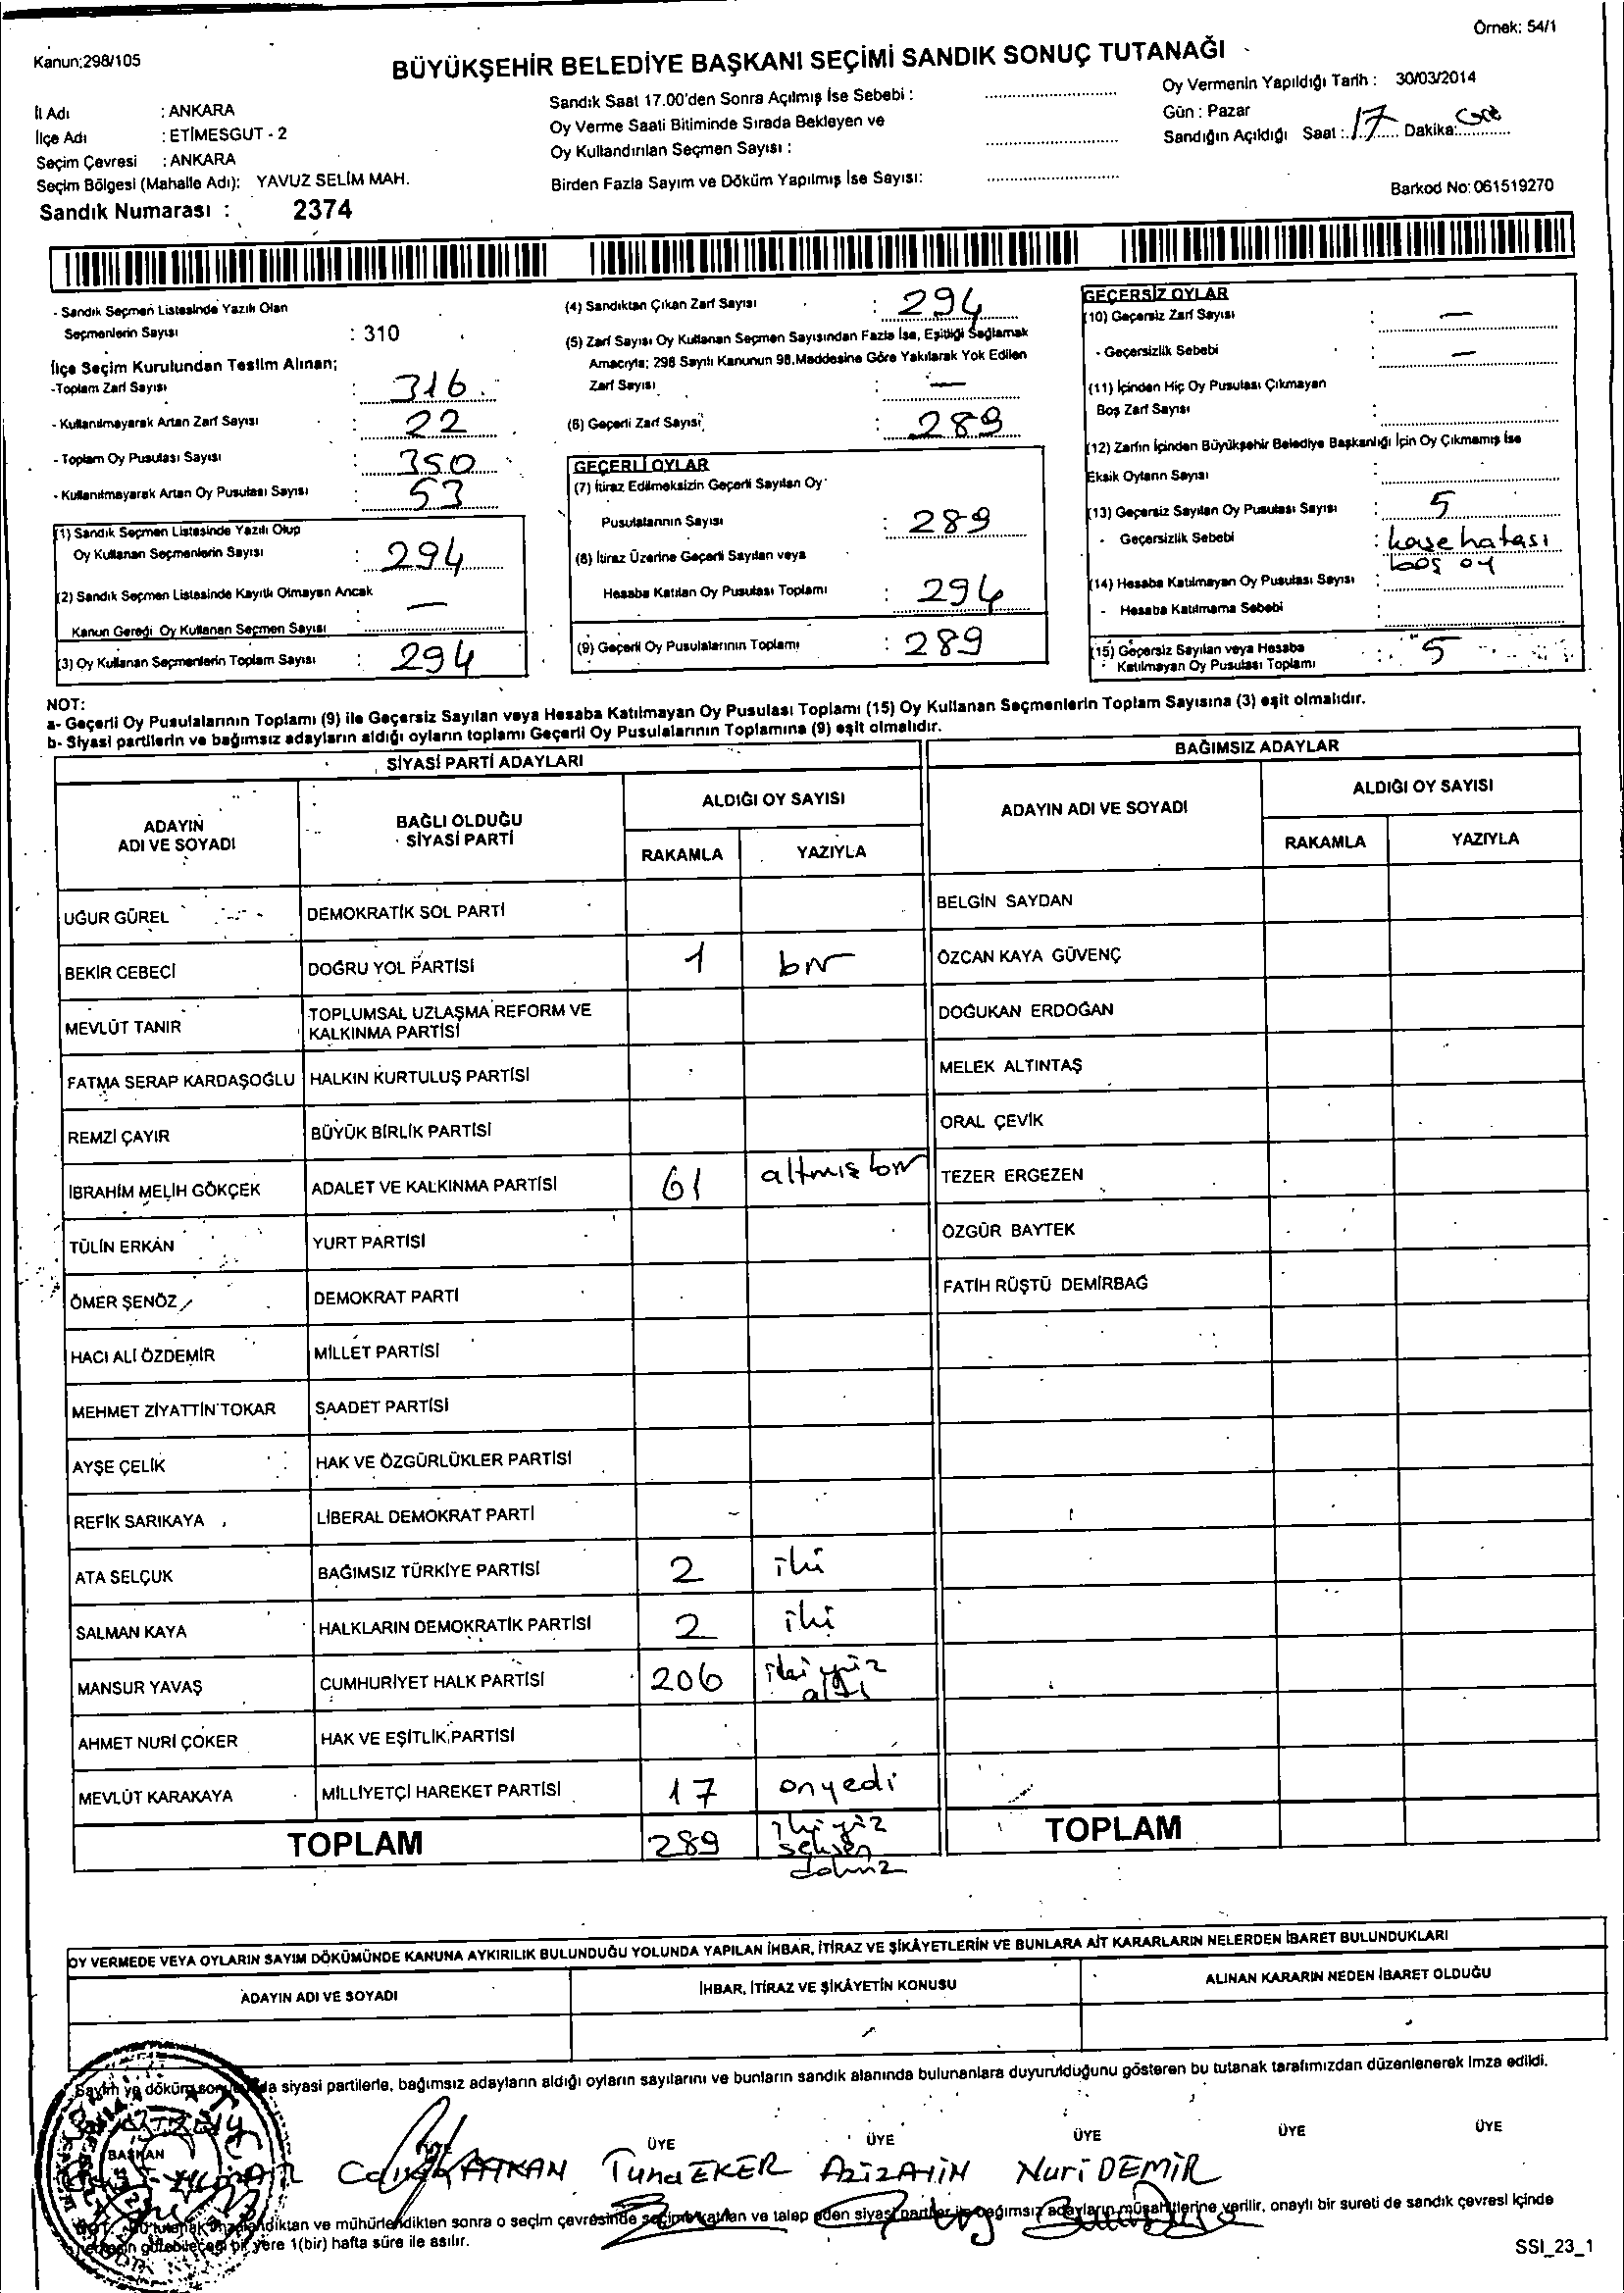 Örnek: 54/1
Kanun:298/105
BÜYÜKŞEHİR BELEDİYE BAŞKANI SEÇİMİ SANDIK SONUÇ TUTANAĞI
İl Adı : ANKARA
İlçe Adı : ETİMESGUT - 2
Seçim Çevresi : ANKARA
Seçim Bölgesi (Mahalle Adı): YAVUZ SELİM MAH.
Sandık Numarası : 2374
Sandık Saat 17.00'den Sonra Açılmış İse Sebebi :
Oy Verme Saati Bitiminde Sırada Bekleyen ve
Oy Kullandırılan Seçmen Sayısı :
Birden Fazla Sayım ve Döküm Yapılmış İse Sayısı:
Oy Vermenin Yapıldığı Tarih : 30/03/2014
Gün : Pazar
Sandığın Açıldığı Saat : 17 Dakika:
Barkod No: 061519270
- Sandık Seçmen Listesinde Yazılı Olan
Seçmenlerin Sayısı : 310
İlçe Seçim Kurulundan Teslim Alınan;
-Toplam Zarf Sayısı : 316
- Kullanılmayarak Artan Zarf Sayısı : 22
- Toplam Oy Pusulası Sayısı : 350
- Kullanılmayarak Artan Oy Pusulası Sayısı : 53
(1) Sandık Seçmen Listesinde Yazılı Olup
Oy Kullanan Seçmenlerin Sayısı : 294
(2) Sandık Seçmen Listesinde Kayıtlı Olmayan Ancak
Kanun Gereği Oy Kullanan Seçmen Sayısı —
(3) Oy Kullanan Seçmenlerin Toplam Sayısı : 294
(4) Sandıktan Çıkan Zarf Sayısı : 294
(5) Zarf Sayısı Oy Kullanan Seçmen Sayısından Fazla İse, Eşitliği Sağlamak
Amacıyla; 298 Sayılı Kanunun 98.Maddesine Göre Yakılarak Yok Edilen
Zarf Sayısı : —
(6) Geçerli Zarf Sayısı : 289
GEÇERLİ OYLAR
(7) İtiraz Edilmeksizin Geçerli Sayılan Oy
Pusulalarının Sayısı : 289
(8) İtiraz Üzerine Geçerli Sayılan veya
Hesaba Katılan Oy Pusulası Toplamı : 294
(9) Geçerli Oy Pusulalarının Toplamı : 289
GEÇERSİZ OYLAR
(10) Geçersiz Zarf Sayısı : —
- Geçersizlik Sebebi : —
(11) İçinden Hiç Oy Pusulası Çıkmayan
Boş Zarf Sayısı :
(12) Zarfın İçinden Büyükşehir Belediye Başkanlığı İçin Oy Çıkmamış İse
Eksik Oyların Sayısı :
(13) Geçersiz Sayılan Oy Pusulası Sayısı : 5
- Geçersizlik Sebebi : kaşe hatası
boş oy
(14) Hesaba Katılmayan Oy Pusulası Sayısı :
- Hesaba Katılmama Sebebi :
(15) Geçersiz Sayılan veya Hesaba
Katılmayan Oy Pusulası Toplamı : 5
NOT:
a- Geçerli Oy Pusulalarının Toplamı (9) ile Geçersiz Sayılan veya Hesaba Katılmayan Oy Pusulası Toplamı (15) Oy Kullanan Seçmenlerin Toplam Sayısına (3) eşit olmalıdır.
b- Siyasi partilerin ve bağımsız adayların aldığı oyların toplamı Geçerli Oy Pusulalarının Toplamına (9) eşit olmalıdır.
SİYASİ PARTİ ADAYLARI
BAĞIMSIZ ADAYLAR
ADAYIN
ADI VE SOYADI
BAĞLI OLDUĞU
SİYASİ PARTİ
ALDIĞI OY SAYISI
RAKAMLA YAZIYLA
ADAYIN ADI VE SOYADI
ALDIĞI OY SAYISI
RAKAMLA YAZIYLA
UĞUR GÜREL DEMOKRATİK SOL PARTİ BELGİN SAYDAN
BEKİR CEBECİ DOĞRU YOL PARTİSİ 1 bir ÖZCAN KAYA GÜVENÇ
MEVLÜT TANIR TOPLUMSAL UZLAŞMA REFORM VE
KALKINMA PARTİSİ DOĞUKAN ERDOĞAN
FATMA SERAP KARDAŞOĞLU HALKIN KURTULUŞ PARTİSİ MELEK ALTINTAŞ
REMZİ ÇAYIR BÜYÜK BİRLİK PARTİSİ ORAL ÇEVİK
İBRAHİM MELİH GÖKÇEK ADALET VE KALKINMA PARTİSİ 61 altmış bir TEZER ERGEZEN
TÜLİN ERKAN YURT PARTİSİ ÖZGÜR BAYTEK
ÖMER ŞENÖZ DEMOKRAT PARTİ FATİH RÜŞTÜ DEMİRBAĞ
HACI ALİ ÖZDEMİR MİLLET PARTİSİ
MEHMET ZİYATTİN TOKAR SAADET PARTİSİ
AYŞE ÇELİK HAK VE ÖZGÜRLÜKLER PARTİSİ
REFİK SARIKAYA LİBERAL DEMOKRAT PARTİ
ATA SELÇUK BAĞIMSIZ TÜRKİYE PARTİSİ 2 iki
SALMAN KAYA HALKLARIN DEMOKRATİK PARTİSİ 2 iki
MANSUR YAVAŞ CUMHURİYET HALK PARTİSİ 206 ikiyüz
altı
AHMET NURİ ÇÖKER HAK VE EŞİTLİK PARTİSİ
MEVLÜT KARAKAYA MİLLİYETÇİ HAREKET PARTİSİ 17 onyedi
TOPLAM 289 ikiyüz
seksen
dokuz
TOPLAM
OY VERMEDE VEYA OYLARIN SAYIM DÖKÜMÜNDE KANUNA AYKIRILIK BULUNDUĞU YOLUNDA YAPILAN İHBAR, İTİRAZ VE ŞİKÂYETLERİN VE BUNLARA AİT KARARLARIN NELERDEN İBARET BULUNDUKLARI
ADAYIN ADI VE SOYADI
İHBAR, İTİRAZ VE ŞİKÂYETİN KONUSU
ALINAN KARARIN NEDEN İBARET OLDUĞU
Sayım ve döküm sonucunda siyasi partilerle, bağımsız adayların aldığı oyların sayılarını ve bunların sandık alanında bulunanlara duyurulduğunu gösteren bu tutanak tarafımızdan düzenlenerek imza edildi.
BAŞKAN ÜYE ÜYE ÜYE ÜYE ÜYE
Tuna EKER AZİZ Nuri DEMİR
NOT: Bu tutanak imzalandıktan ve mühürlendikten sonra o seçim çevresinde seçime katılan ve talep eden siyasi partiler ile bağımsız adayların müşahitlerine verilir, onaylı bir sureti de sandık çevresi içinde
herkesin görebileceği bir yere 1(bir) hafta süre ile asılır.
SSI_23_1